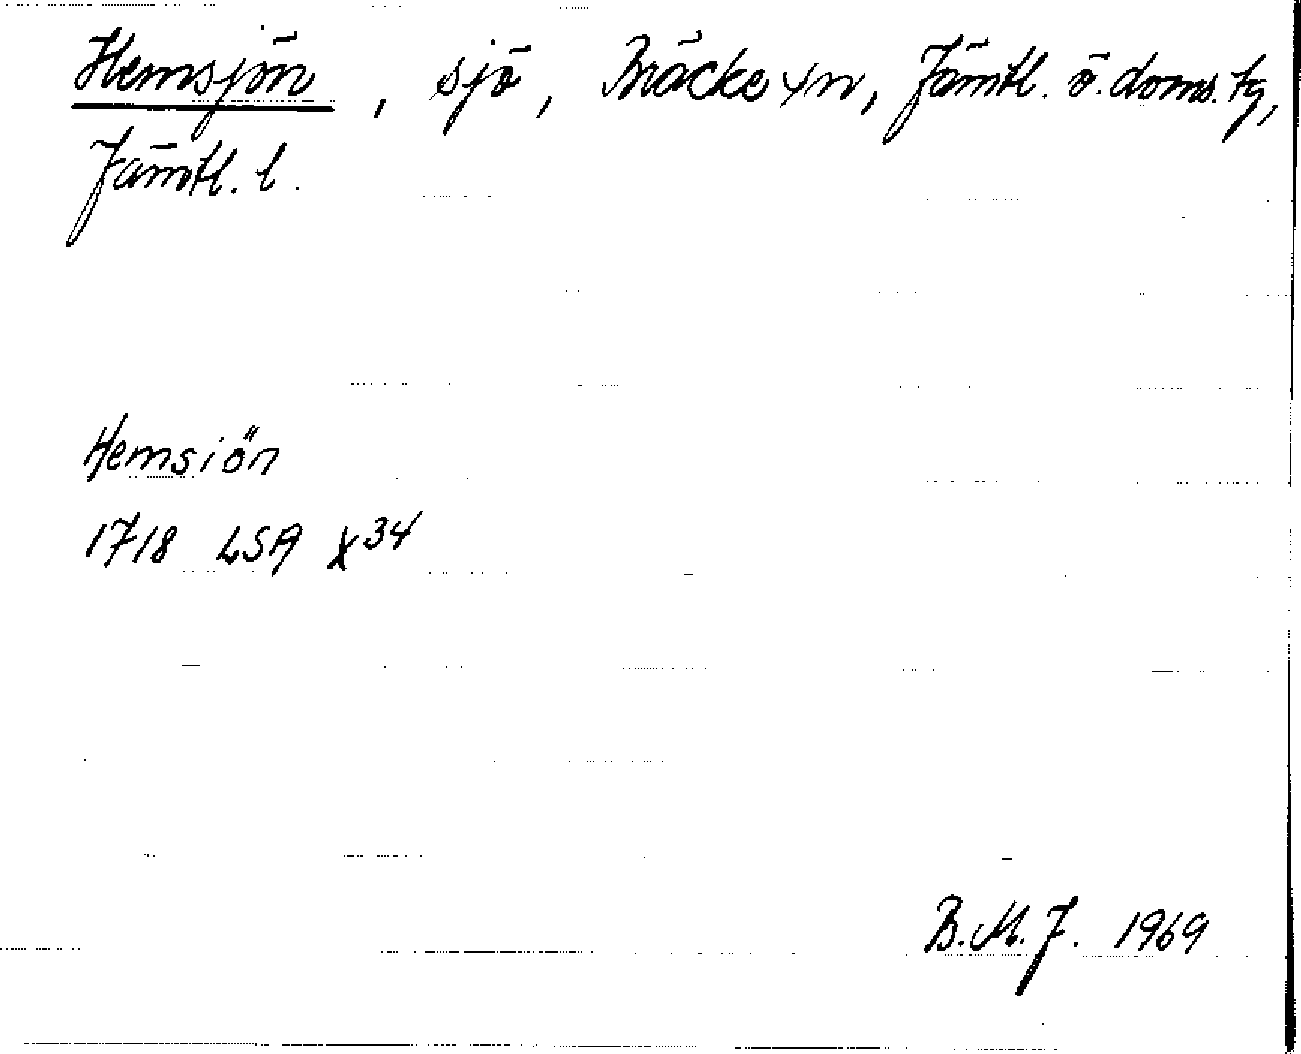 Hemsjön, sjö, Bräcke sn, Jämtl. ö. doms. tg,
Jämtl. l.
Hemsiön
1718 LSA X34
B.M.J. 1969